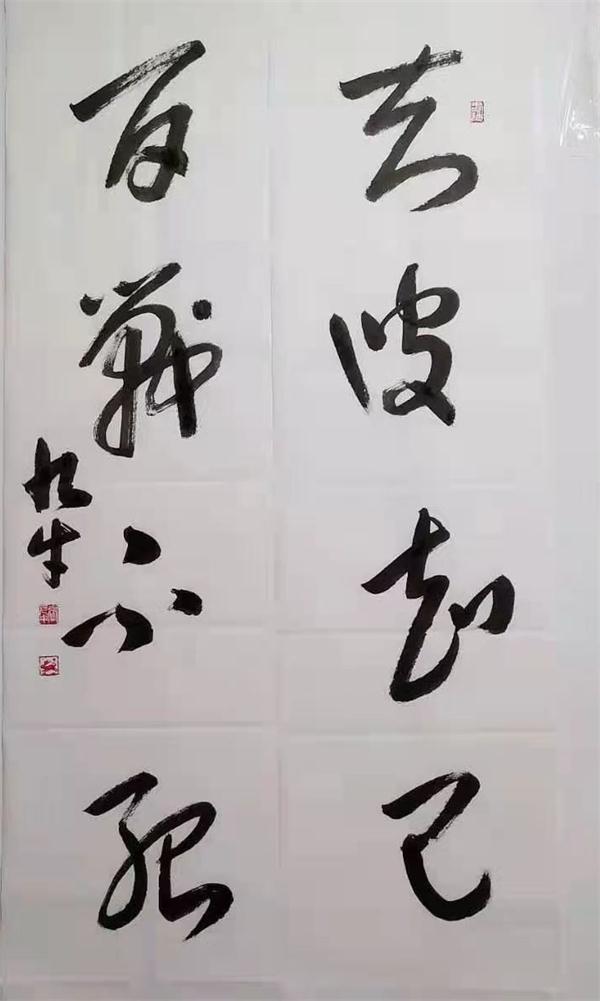 知彼知己
百戰不殆